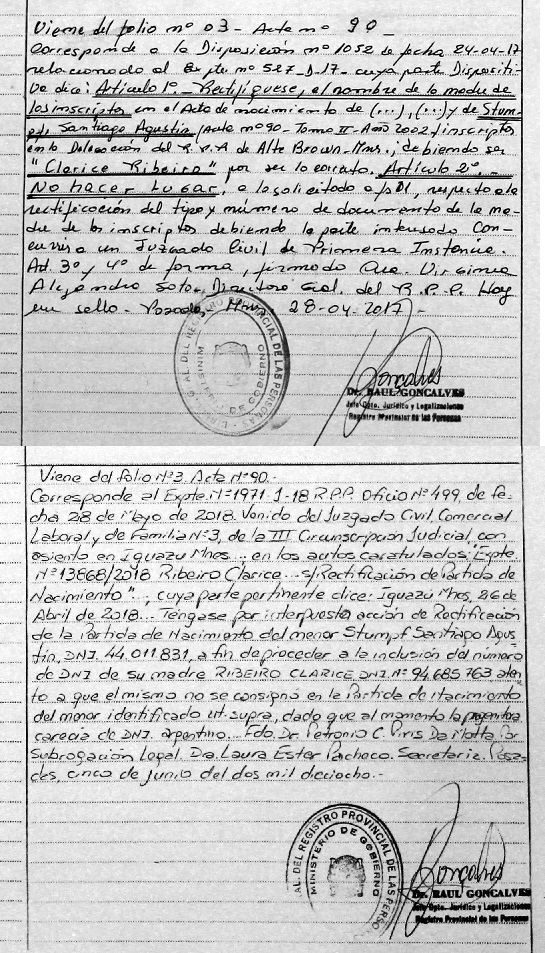 Viene del folio nº 03 - Acta nº 90 -
Corresponde a la Disposición nº 1052 de fecha 24-04-17
relacionado al Expte. nº 527-D-17 - cuya parte Dispositi-
va dice: Artículo 1º - Rectifíquese, el nombre de la madre de
los inscriptos en el Acta de nacimiento de (...), (...) y de Stum-
pf Santiago Agustín, /acta nº 90 - Tomo II - Año 2002/ inscriptos
en la Delegación del R.P.P. de Alte Brown - Mnes., debiendo ser
"Clarice Ribeiro" por ser lo correcto. Artículo 2º. -
No hacer lugar, a lo solicitado a fs 01, respecto a la
rectificación del tipo y número de documento de la ma-
dre de los inscriptos debiendo la parte interesada Con-
currir a un Juzgado Civil de Primera Instancia.
Art. 3º y 4º de forma, firmado Dra. Virginia
Alejandra Soto, Directora Gral. del R.P.P. Hay
un sello - Posadas, Mnes. 28-04-2017 -
MINISTERIO DE GOBIERNO
AL. DEL REGISTRO PROVINCIAL DE LAS PERSONAS
Gonçalves
Dr. RAUL GONCALVES
Jefe Dpto. Jurídico y Legalizaciones
Registro Provincial de las Personas
Viene del folio Nº3. Acta Nº90.-
Corresponde al Expte. Nº1971-J-18 R.P.P. Oficio Nº 499, de fe-
cha 28 de Mayo de 2018. Venido del Juzgado Civil, Comercial
Laboral y de Familia Nº3, de la III Circunscripción Judicial, con
asiento en Iguazú Mnes... en los autos caratulados: Expte.
Nº13868/2018 Ribeiro Clarice... s/Rectificación de Partida de
Nacimiento"..., cuya parte pertinente dice: Iguazú Mnes, 26 de
Abril de 2018... Téngase por interpuesta acción de Rectificación
de la Partida de Nacimiento del menor Stumpf Santiago Agus
tín, DNI. 44.011.831, a fin de proceder a la inclusión del número
de DNI de su madre RIBEIRO CLARICE, DNI. Nº 94.685.763 aten
to a que el mismo no se consignó en la Partida de Nacimiento
del menor identificado ut-supra, dado que al momento la progenitora
carecía de DNI. argentino... Fdo. Dr. Petronio C. Piris Da Motta Por
Subrogación Legal. Dra Laura Ester Pacheco. Secretaria. Posa-
des, cinco de junio del dos mil dieciocho.-
AL. DEL REGISTRO PROVINCIAL DE LAS PERSO
MINISTERIO DE GOBIERNO
Gonçalves
Dr. RAUL GONCALVES
Jefe Dpto. Jurídico y Legalizaciones
Registro Provincial de las Personas